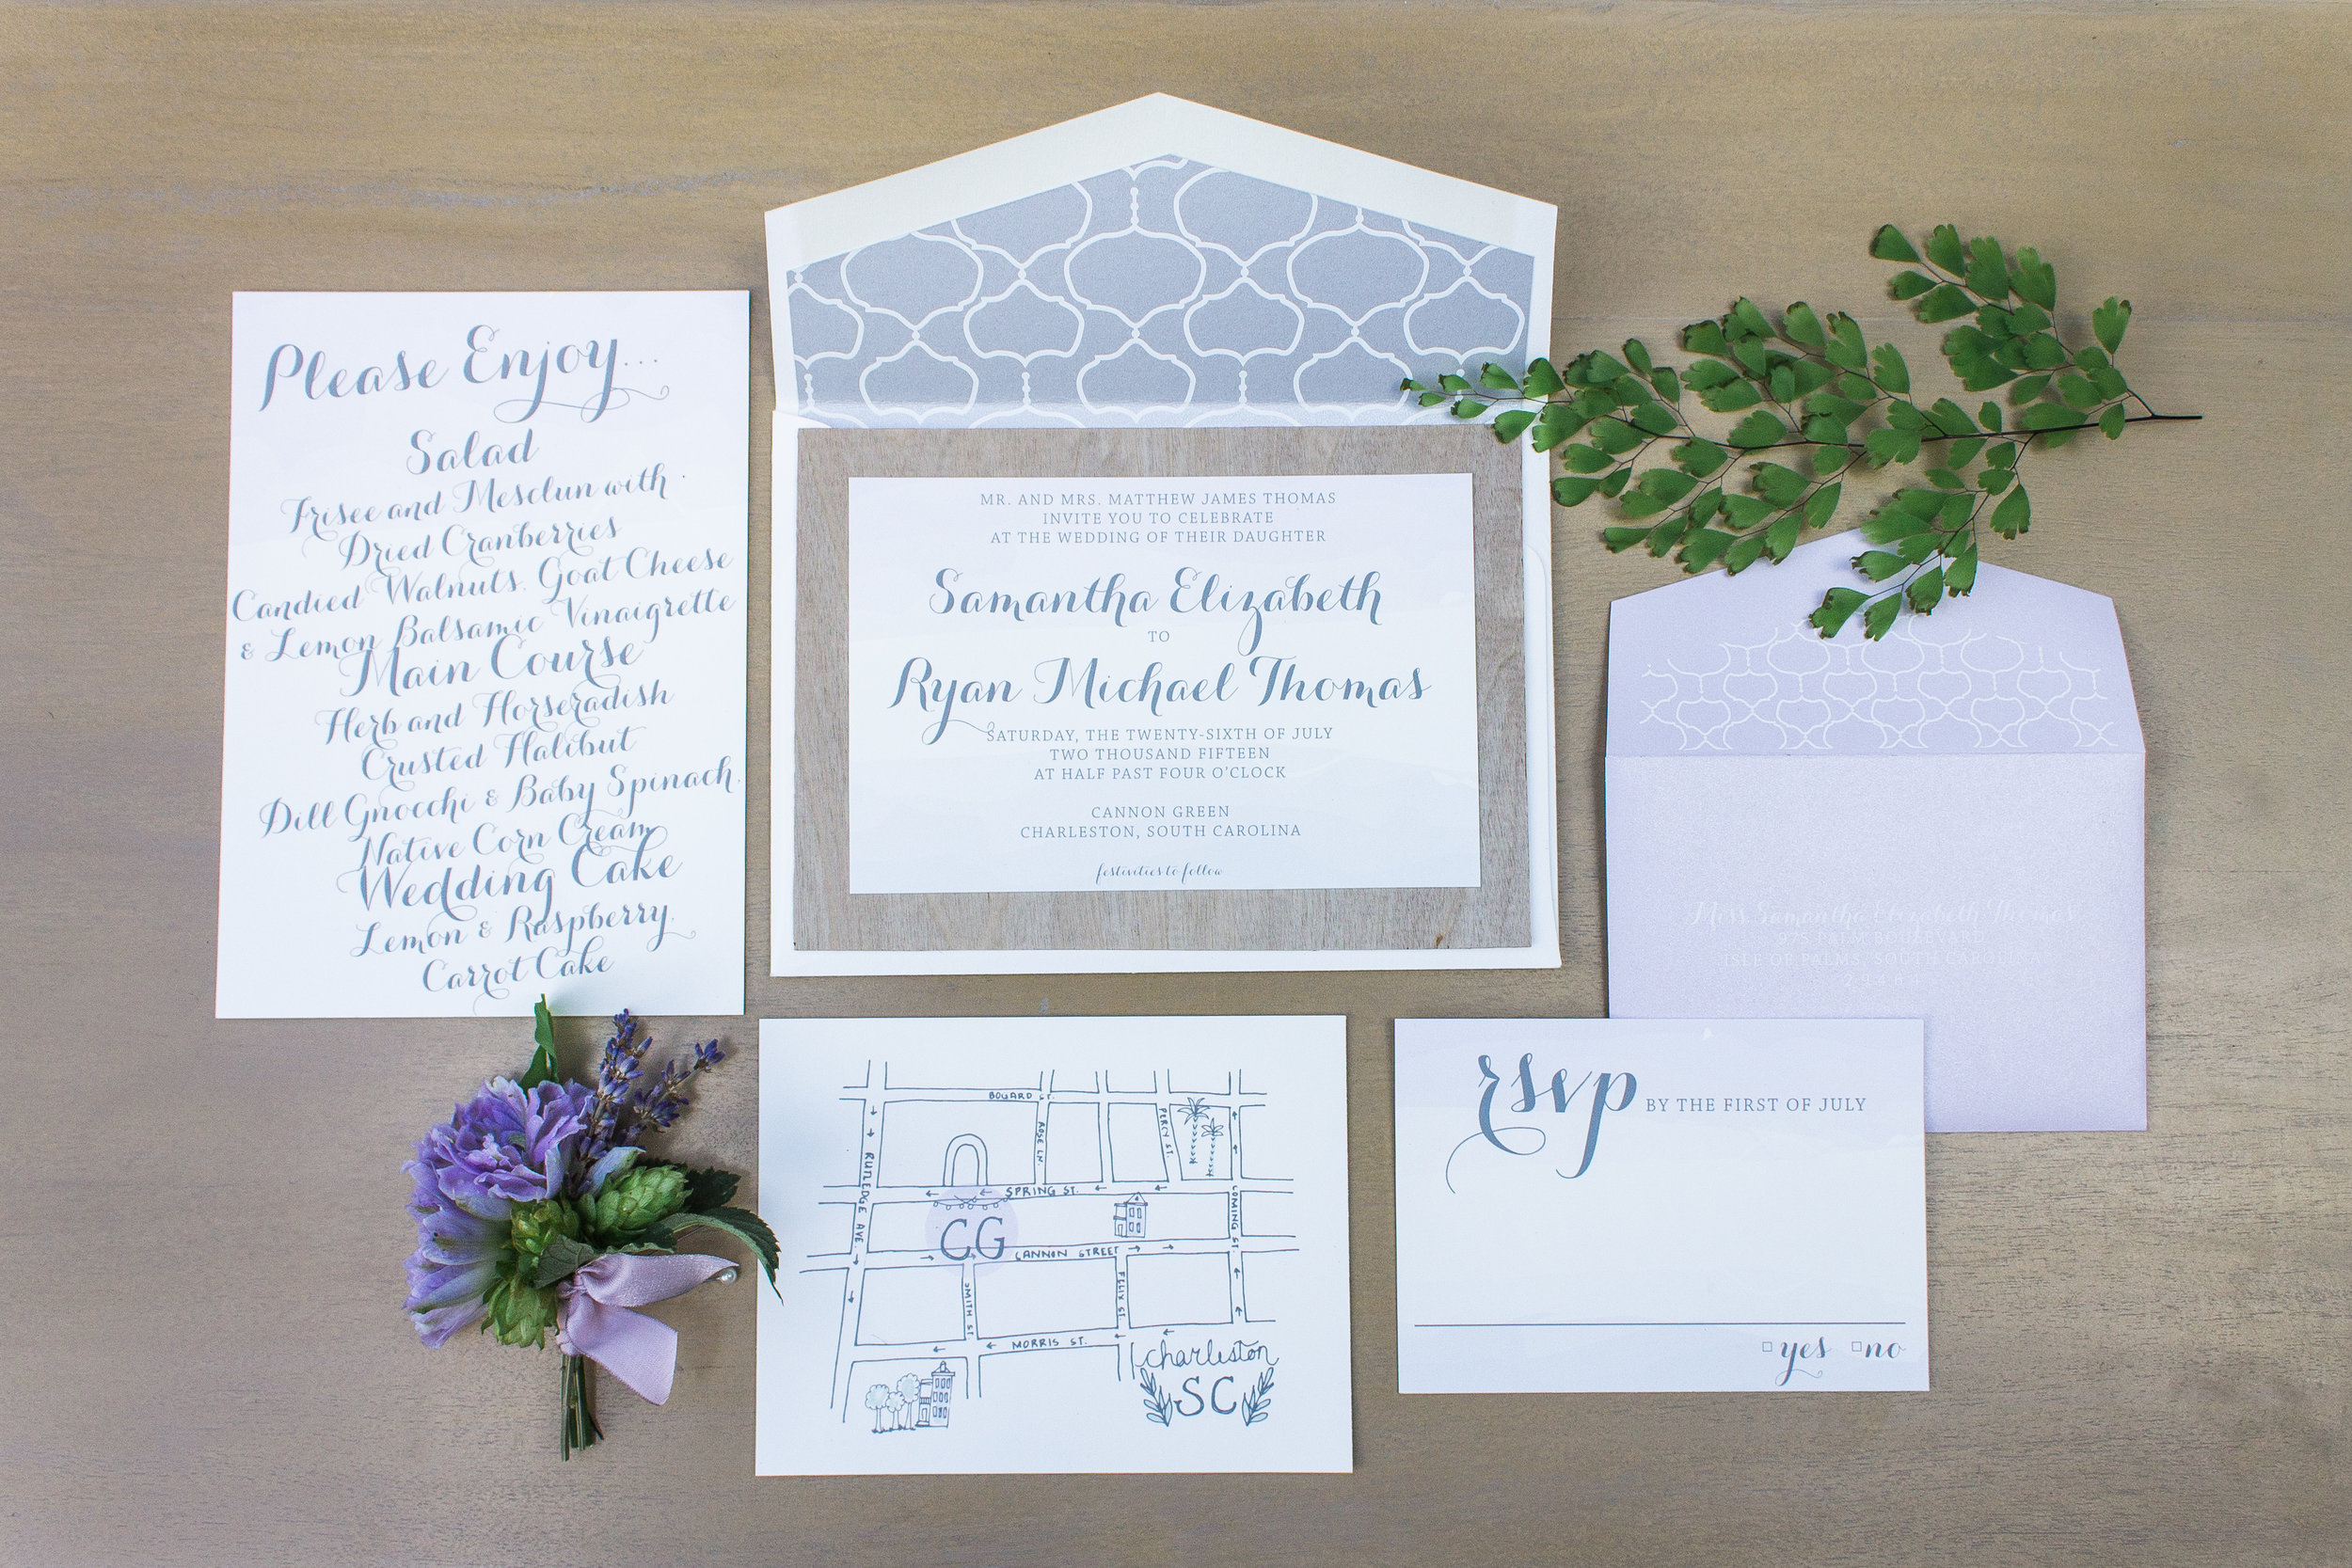 Please Enjoy...
Salad
Frisee and Mesclun with
Dried Cranberries
Candied Walnuts, Goat Cheese
& Lemon Balsamic Vinaigrette
Main Course
Herb and Horseradish
Crusted Halibut
Dill Gnocchi & Baby Spinach,
Native Corn Cream
Wedding Cake
Lemon & Raspberry,
Carrot Cake
MR. AND MRS. MATTHEW JAMES THOMAS
INVITE YOU TO CELEBRATE
AT THE WEDDING OF THEIR DAUGHTER
Samantha Elizabeth
TO
Ryan Michael Thomas
SATURDAY, THE TWENTY-SIXTH OF JULY
TWO THOUSAND FIFTEEN
AT HALF PAST FOUR O'CLOCK
CANNON GREEN
CHARLESTON, SOUTH CAROLINA
festivities to follow
Miss Samantha Elizabeth Thomas
975 PALM BOULEVARD
ISLE OF PALMS, SOUTH CAROLINA
BOGARD ST.
ROSE LN.
PERCY ST.
RUTLEDGE AVE.
SPRING ST.
COMING ST.
CG
CANNON STREET
SMITH ST.
FELIX ST.
MORRIS ST.
Charleston
SC
rsvp BY THE FIRST OF JULY
yes no